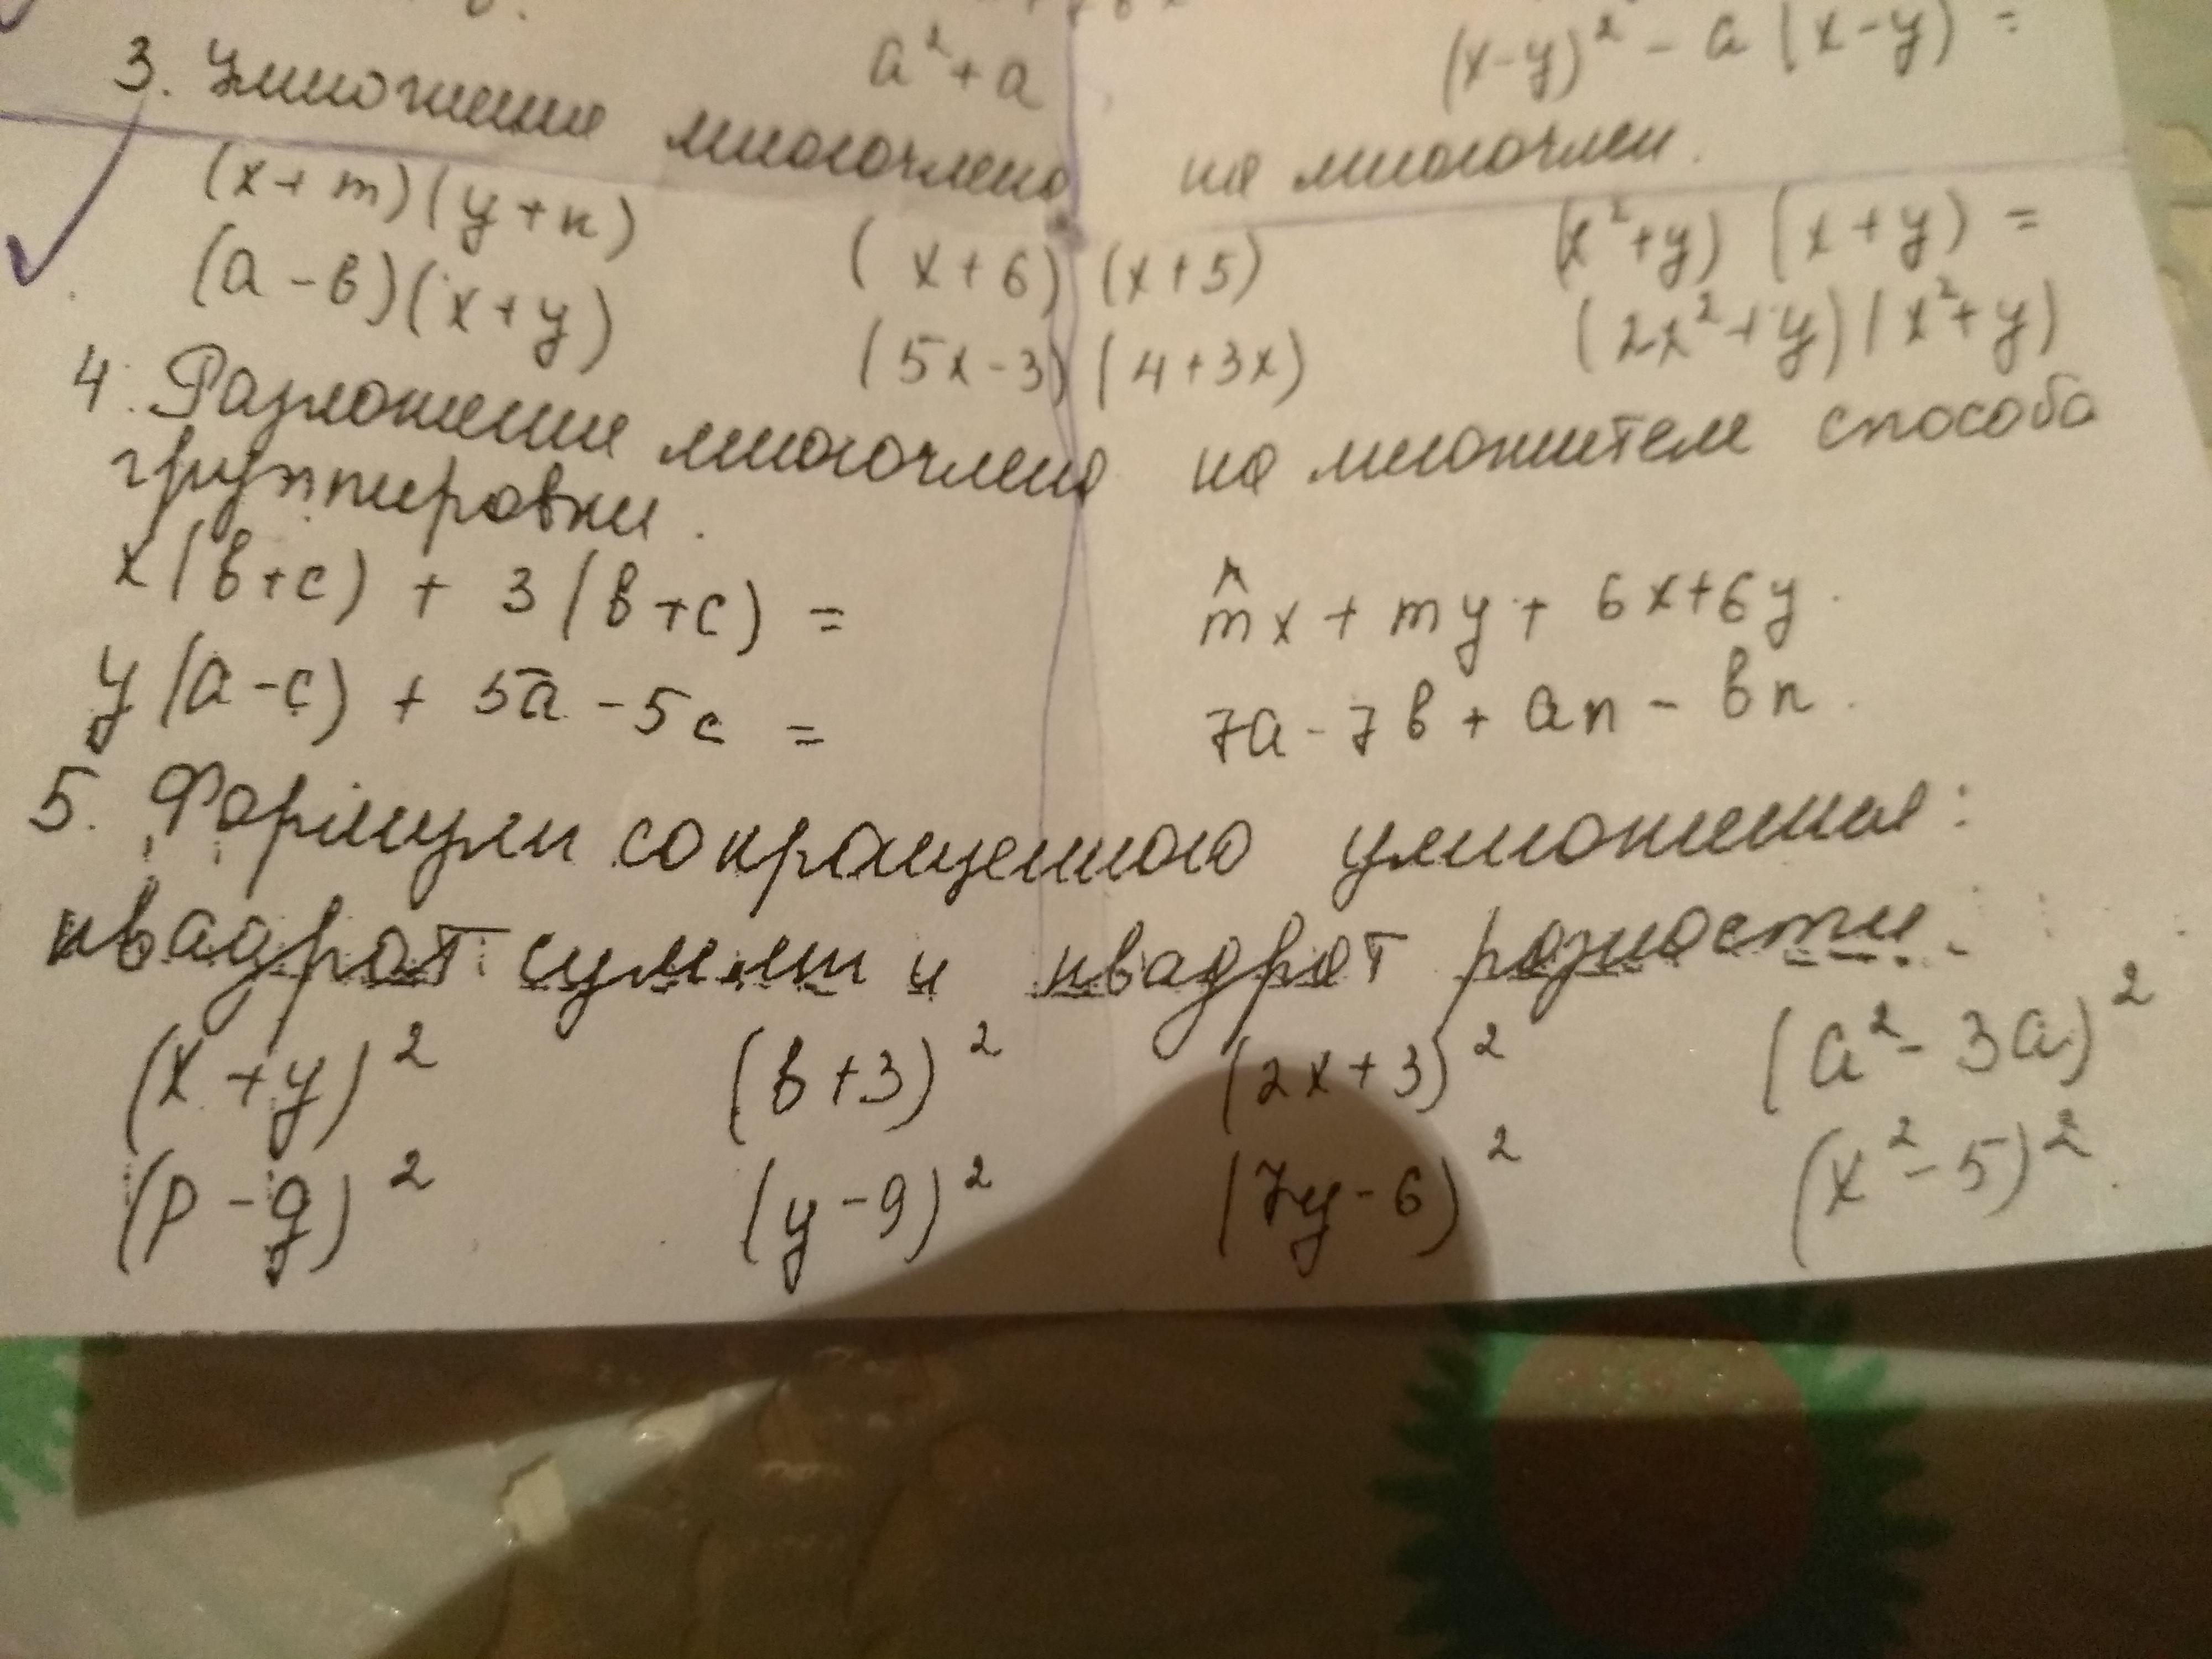 a² + a (x-y)² - a (x-y) =
3. Умножение многочлена на многочлен.
(x + m)(y + n) (x + 6) (x + 5) (x² + y) (x + y) =
(a - b)(x + y) (5x - 3) (4 + 3x) (2x² + y) (x² + y)
4. Разложение многочлена на множители способа
группировки.
x(b+c) + 3(b+c) = mx + my + 6x + 6y.
y(a-c) + 5a - 5c = 7a - 7b + an - bn.
5. Формулы сокращенного умножения:
квадрат суммы и квадрат разности.
(x + y)² (b + 3)² (2x + 3)² (a² - 3a)²
(p - q)² (y - 9)² (7y - 6)² (x² - 5)².